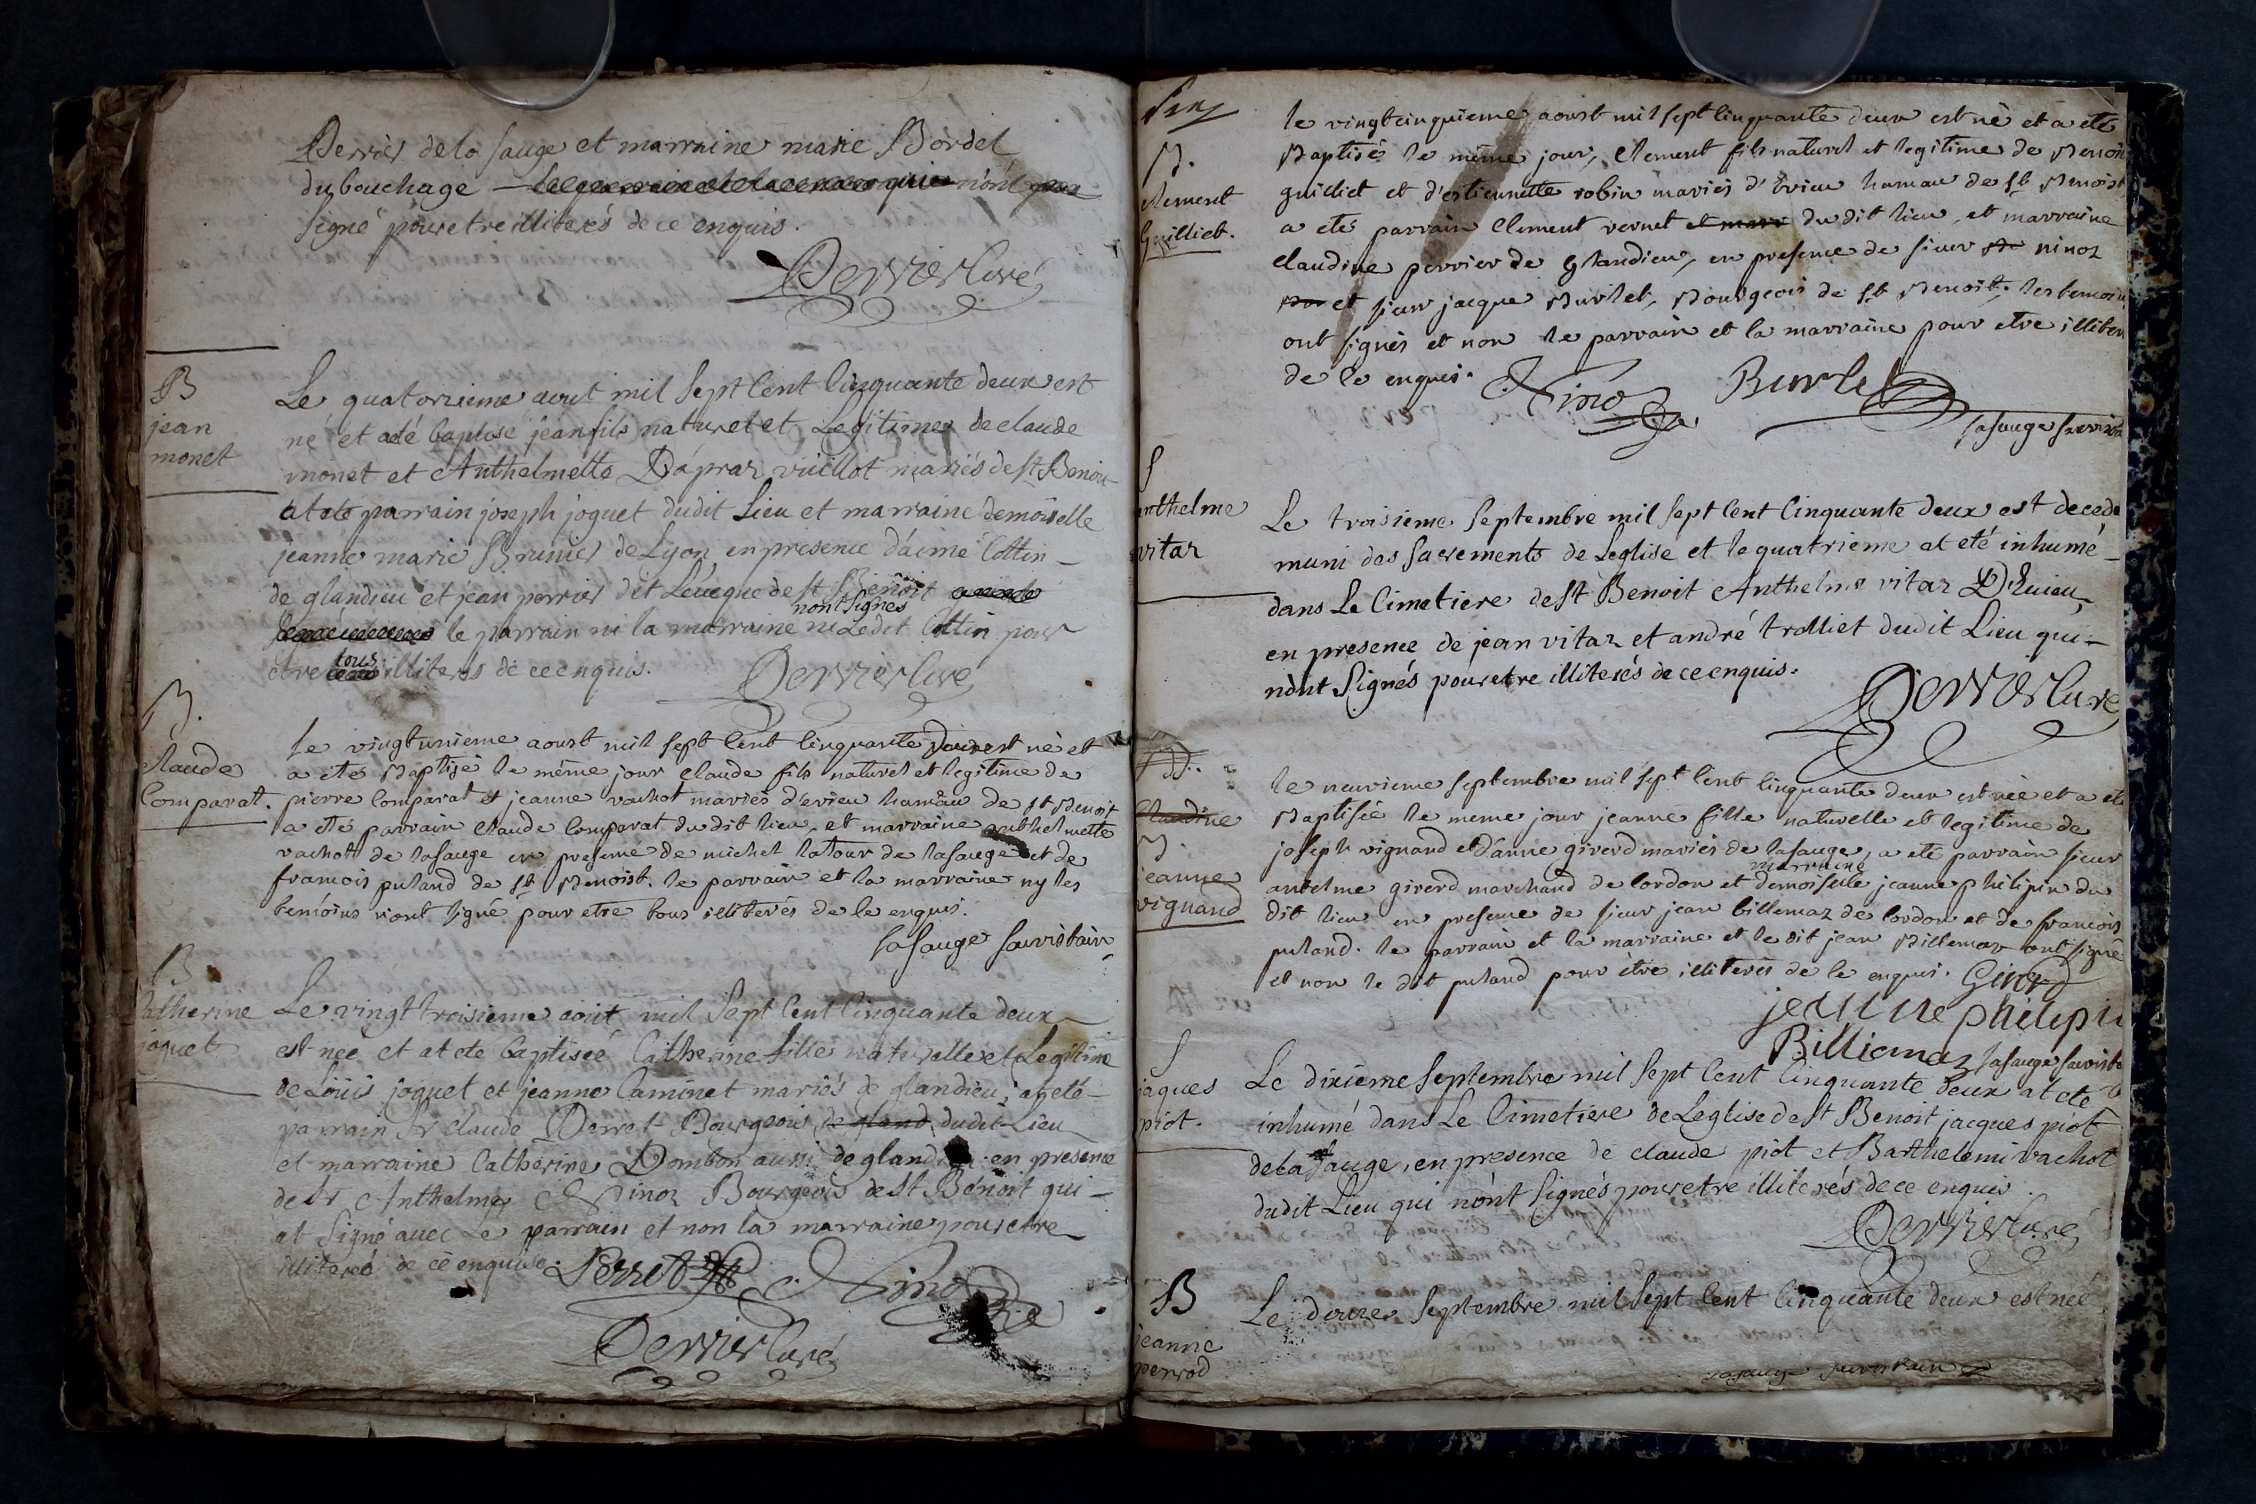 Perrier de la sauge et marraine marie Bordel
du bouchage n'ont pour
signé pour etre illiterés de ce enquis.
Perrier Curé
B
jean
monet
Le quatorzieme aout mil sept Cent Cinquante deux est
né et aeté Baptisé jean fils naturel et Legitime de claude
monet et Anthelmette Dáprar vuillot mariés de st Benoit
at eté parrain joseph joguet dudit Lieu et marraine demoiselle
jeanne marie Brunier de Lyon, en presence d'aimé Cottin
de glandieu et jean perrier dit Léveque de st Benoit
nont signés
le parrain ni la marraine ni Ledit Cottin pour
etre tous illiterés de ce enquis.
Perrier Curé
B.
Claude
Comparat.
le vingtunieme aoust mil sept Cent Cinquante deux est nè et
a etes Baptisé le même jour Claude fils naturel et legitime de
pierre Comparat et jeanne vachot mariés d'evieu hamau de st Benoit
a etè parrain Claude Comparat du dit lieu, et marraine anthelmette
vachot de lasauge en presence de michel latour de lasauge et de
francois puland de st Benoist. le parrain et la marraine ny les
temoins n'ont signé pour etre tous illiterés de ce enquis.
lasauge sacristain
B
Catherine
joguet
Le vingt troisieme aout mil Sept Cent Cinquante deux
est neé et at eté Baptiseé Catherine fille naturelle et Legitime
de Loüis joguet et jeanne Caminet mariés de glandieu, a eté
parrain Sr claude Perret Bourgeois de gland dudit Lieu
et marraine Catherine Dombon aussi de glandieu en presence
de Sr Anthelme Ninoz Bourgeois de St Benoit qui
at signé avec Le parrain et non la marraine pour etre
illiterée de ce enquise.
Perret Ninoz
Perrier Curé
B.
clement
Guilliet.
le vingtcinquieme aoust mil sept Cinquante deux est nè et a ete
Baptisés le même jour, Clement fils naturel et legitime de Benoit
guilliet et d'estiennette robin mariés d'evieu hamau de st Benoist
a etés parrain Clement vernet et marr du dit lieu, et marraine
Claudine perrier de glandieu, en presence de sieur ninoz
et sieur jacque Burlet, Bourgeois de st Benoit. les temoins
ont signés et non le parrain et la marraine pour etre illiter
de ce enquis.
Ninoz Burlet
lasauge sacrista
S
anthelme
vitaz
Le troisieme septembre mil sept Cent Cinquante deux est decede
muni des sacrements de Leglise et le quatrieme at eté inhumé
dans Le Cimetiere de St Benoit Anthelme vitaz D'Evieu,
en presence de jean vitaz et andré trolliet dudit Lieu qui
nónt Signés pour etre illiterés de ce enquis.
Perrier Curé
Claudine
B.
jeanne
vignand
le neuvieme septembre mil sept Cent Cinquante deux est nèe et a ete
Baptisée le meme jour jeanne fille naturelle et legitime de
joseph vignand et d'anne girerd mariés de lasauge, a ete parrain sieur
marraine
antelme girerd marchand de Cordon et demoiselle jeanne philipin du
dit lieu en presence de sieur jean billemaz de Cordon et de francois
puland. le parrain et la marraine et le dit jean Billemaz ont signé
et non le dit puland pour être illiterés de ce enquis. Girerd
jeanne phelipin
Billiemaz lasauge sacrista
S
jaques
piot.
Le dixième septembre mil sept Cent Cinquante deux at ete
inhumé dans Le Cimetiere de Leglise de St Benoit jacques piot
de la sauge, en presence de claude piot et Barthelemi vachot
dudit Lieu qui nónt signés pour etre illiterés de ce enquis.
Perrier Curé
B
jeanne
perrod
Le douze septembre mil sept Cent Cinquante deux est neé
lasauge sacristain